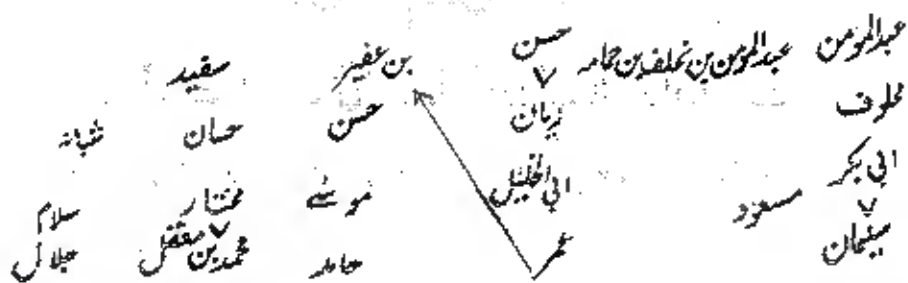 عبدالمومن عبدالمومن بن خلف بن حامد حسن بن عفیر سفید
مخلوف زیان حسن حسان شبانہ
ابی بکر مسعود ابی الخلیل موسے مختار سلام
سلیمان عمر حامد محمد بن معقل جلال